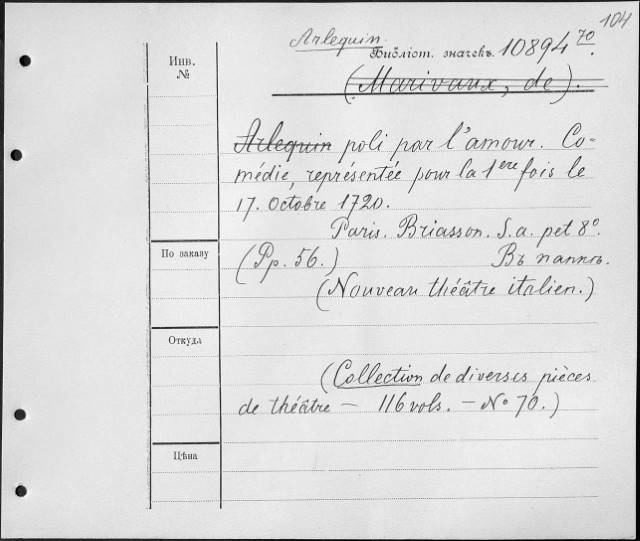 104
Arlequin.
Библіот. значекъ. 10894 70.
Инв.
№
(Marivaux, de).
Arlequin poli par l'amour. Co-
médie, représentée pour la 1ère fois le
17. Octobre 1720.
Paris. Briasson. S.a. pet 8°.
По заказу
(Pp. 56.) Въ папкѣ.
(Nouveau théâtre italien.)
Откуда
(Collection de diverses pièces
de théâtre — 116 vols. — No 70.)
Цѣна